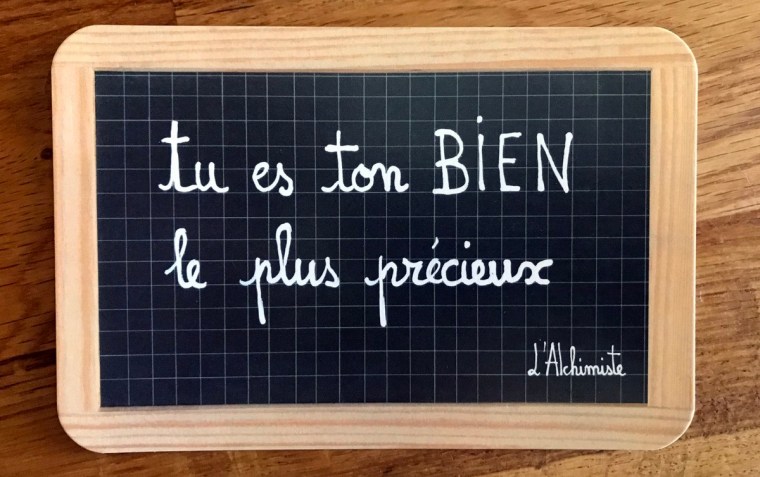 tu es ton BiEN
le plus précieux
L'Alchimiste